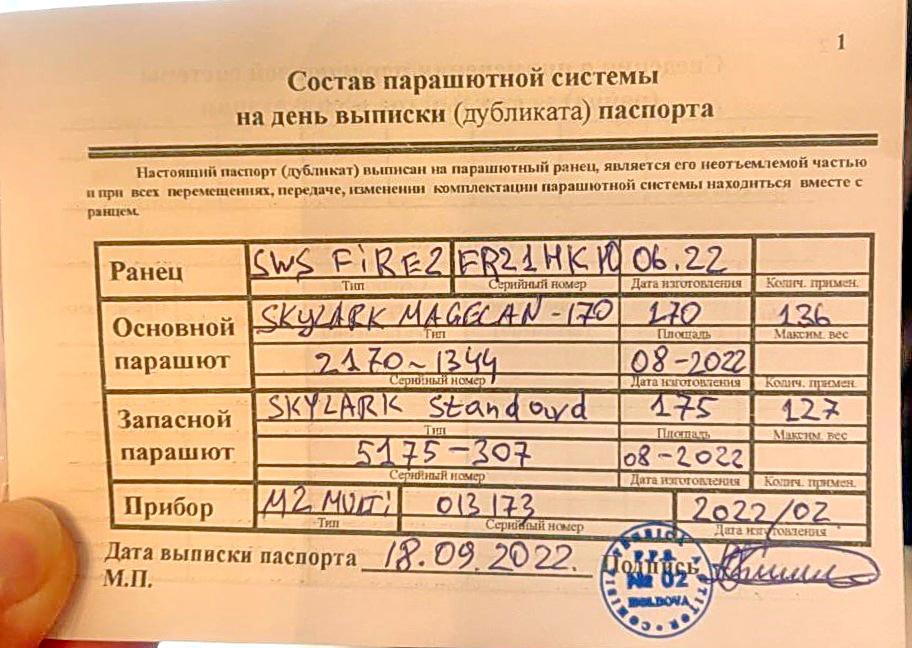 1
Состав парашютной системы
на день выписки (дубликата) паспорта
Настоящий паспорт (дубликат) выписан на парашютный ранец, является его неотъемлемой частью
и при всех перемещениях, передаче, изменении комплектации парашютной системы находиться вместе с
ранцем.
Ранец SWS FiRE2 06.22
Тип Серийный номер Дата изготовления Колич. примен.
Основной парашют SKYLARK MAGELAN-170 170 136
Тип Площадь Максим. вес
2170~1344 08-2022
Серийный номер Дата изготовления Колич. примен.
Запасной парашют SKYLARK Standard 175 127
Тип Площадь Максим. вес
5175-307 08-2022
Серийный номер Дата изготовления Колич. примен.
Прибор M2 MULTi 013173 2022/02
Тип Серийный номер Дата изготовления
Дата выписки паспорта 18.09.2022. Подпись
М.П.
№ 02
MOLDOVA